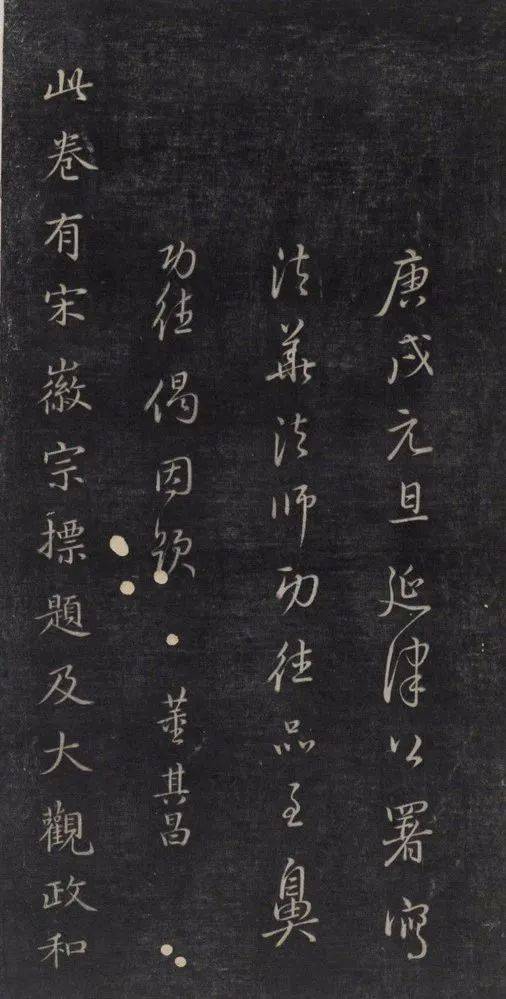 庚戌元旦延津公署寫
法華法師功德品至鼻
功德偈因題 董其昌
此卷有宋徽宗標題及大觀政和